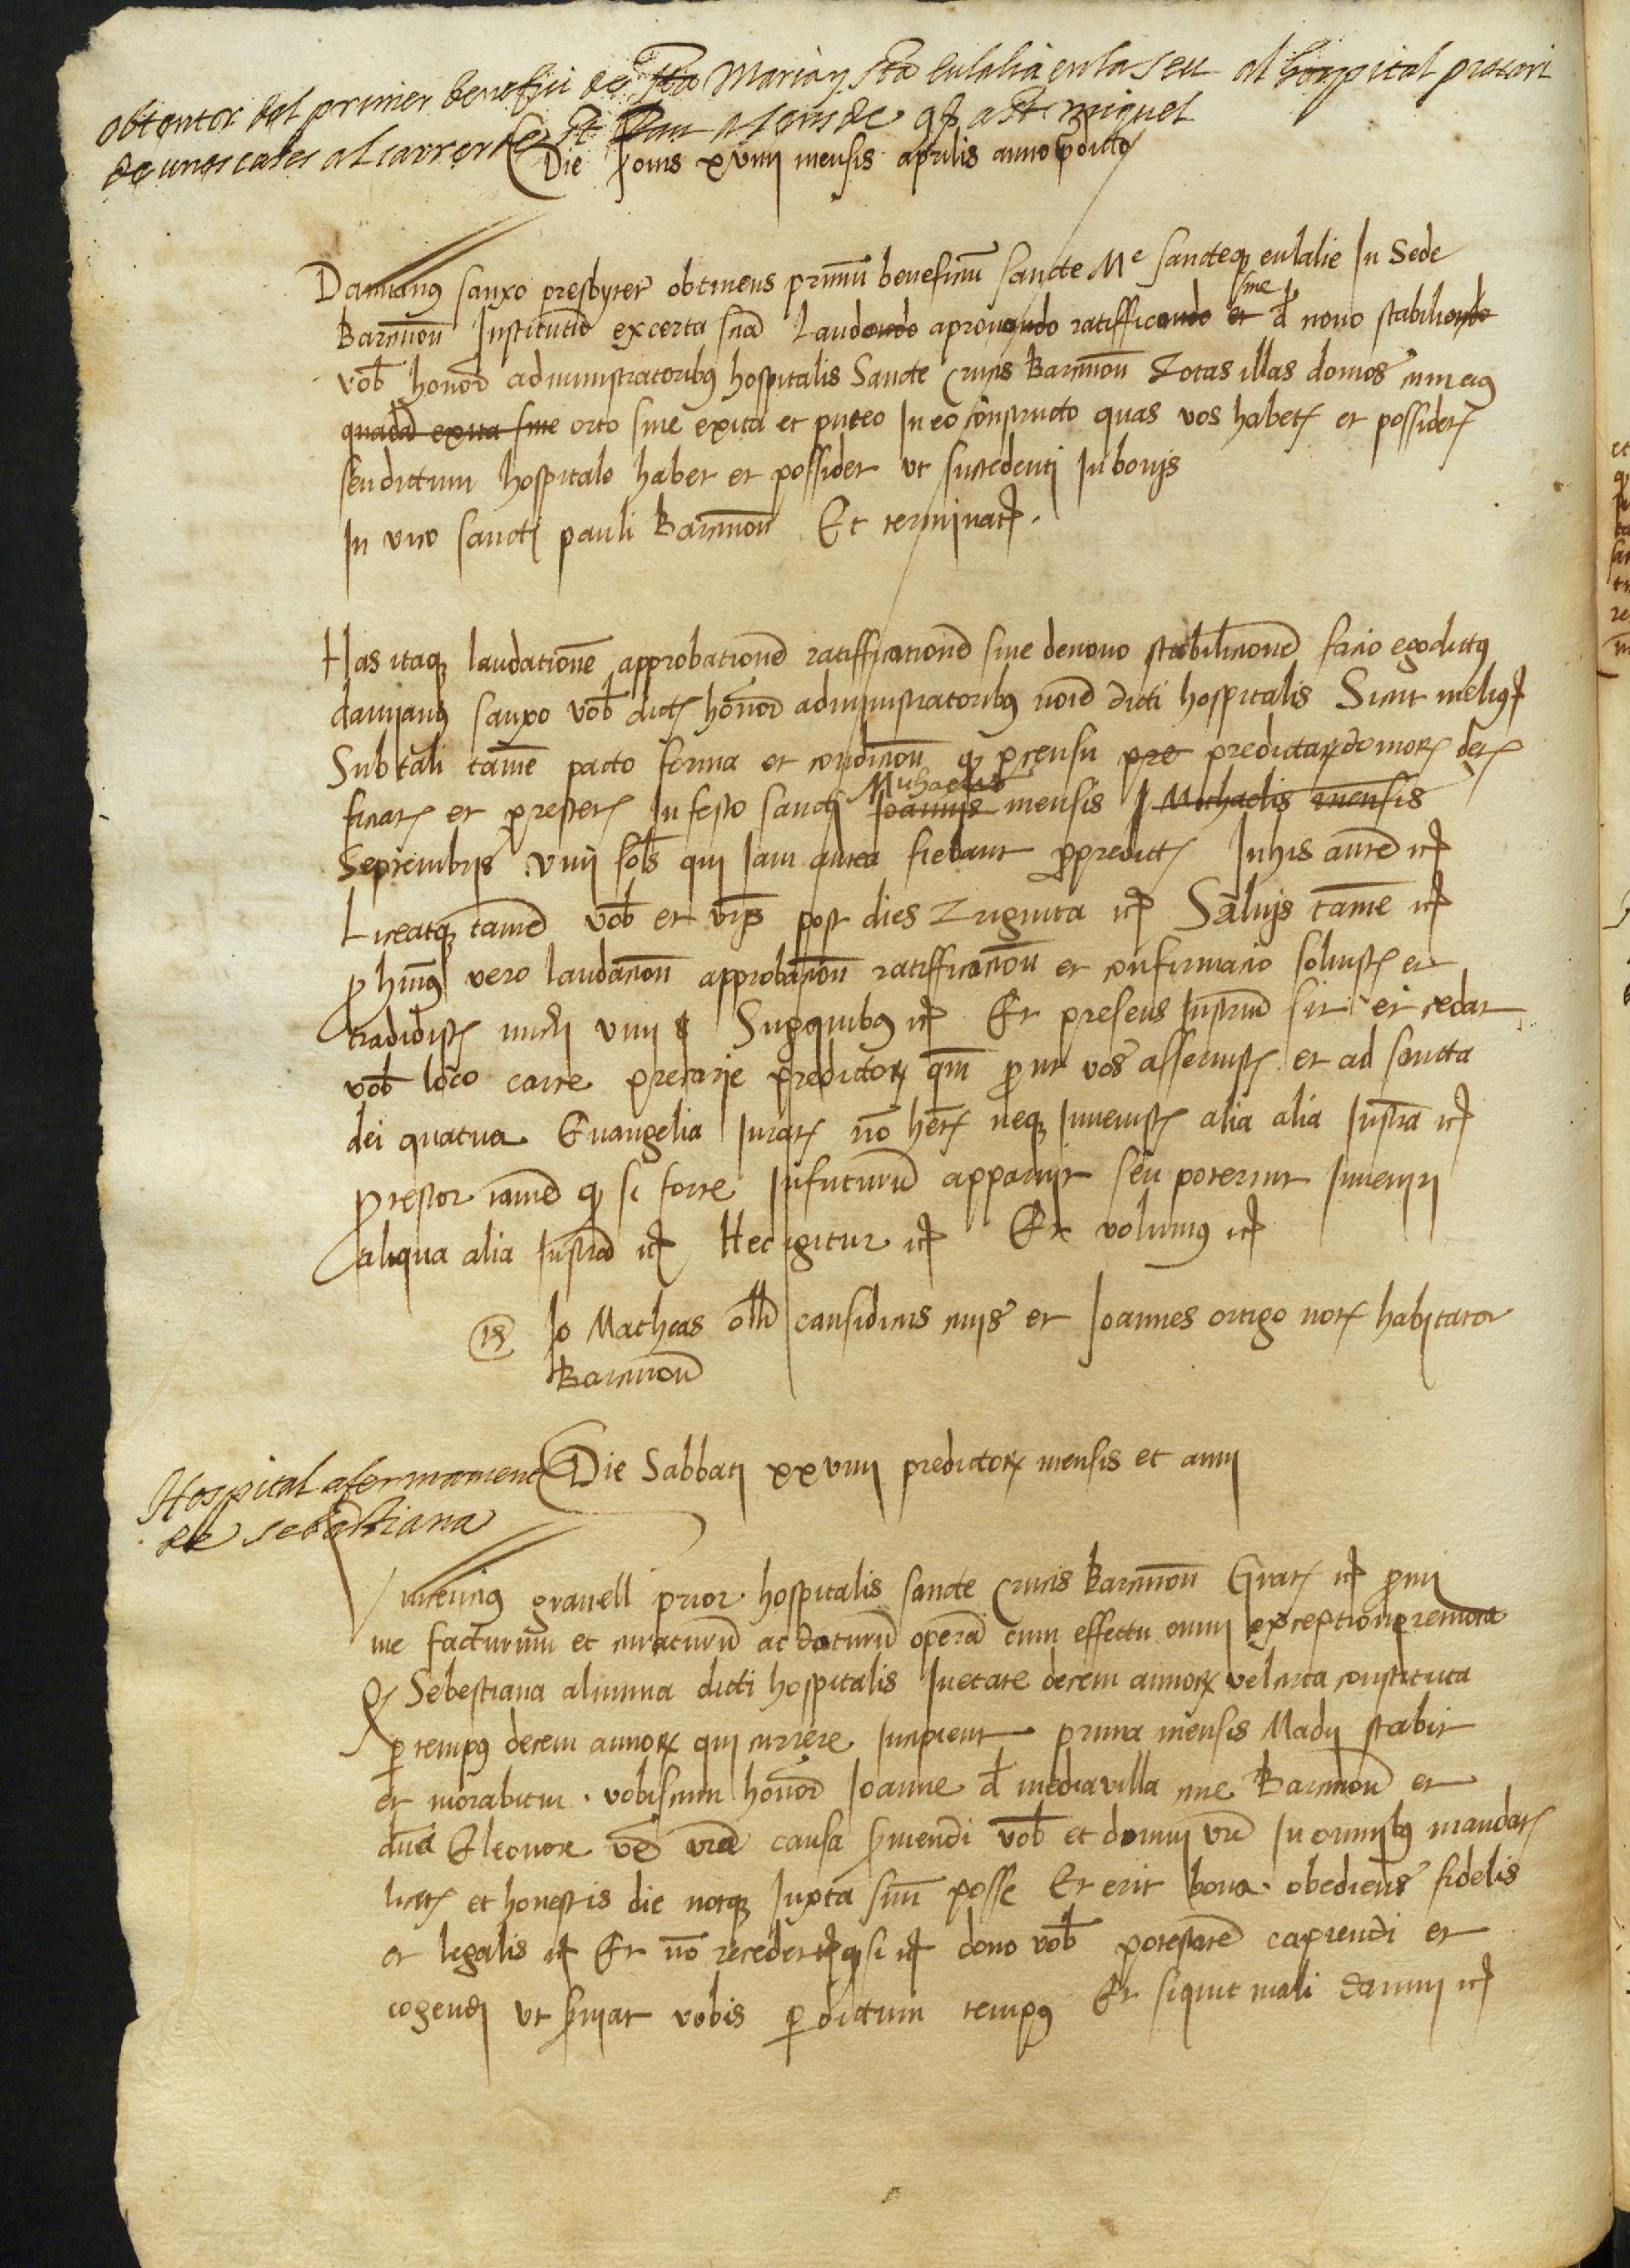 obtentor del primer benefici de Sta Maria y Sta Eulalia en la seu al hospital precari
de unes cases al carrer de St Pau a cens de 9 s a St miquel
Die Jovis xviiii mensis aprilis anno predicto
Damianus sauxo presbyter obtinens primum beneficium sancte Me sancteq eulalie In Sede
Barcinon Institutum ex certa scia Laudando aprouando ratifficando et sive de nouo stabiliendo
vob honor administratoribus hospitalis Sancte Crucis Barcinon Totas illas domos cum eius
quada exita sine orto sive exita et puteo In eo constructo quas vos habetis et possidetis
seu dictum hospitale habet et possidet ut succedenti In bonis
In vico sancti pauli Barcinon Et terminatr.
Has itaq laudatione approbatione ratifficatione sive de nouo stabilicione facio ego dictus
damianus sauxo vob dictis honor administratoribus noie dicti hospitalis Sicut melius etc
Sub tali tame pacto forma et condicion q pro censu pre predictar domor detis
faciatis et prestetis In festo sancti Joannis Michaelis mensis Michaelis mensis
Septembris viiii sols qui Iam antea fiebant pro predictis In his autem etc
Liceatq tame vob et vris post dies Triginta etc Saluis tame etc
pro huius vero laudacion approbacion ratifficacion et confirmacio soluistis et
tradidistis michi viiii s Super quibus etc Et presens Instrum sit et cedat
vob loco carte precarie predictor qm prout vos asseruistis et ad sancta
dei quatuor Euangelia Iuratis no hetis neq Inuenistis alia alia Instra etc
protestor tame q si forte In futurum apparuit seu poterint Inueniri
aliqua alia Instra etc Hec igitur etc Et volumus etc
ts Jo Matheas causidicus civis et Joannes ortigo notr habitator
Barcinon
Hospital afermament
de sebastiana
Die Sabbati xxviiii predictor mensis et anni
Vincencius grauell prior hospitalis sancte Crucis Barcinon Gratis etc promi
me facturum et curaturum ac daturum opera cum effectu omni exceptione remota
Q Sebestiana alumna dicti hospitalis In etate decem annor vel circa constituta
per tempus decem annor qui currere Incipient prima mensis Madii stabit
et morabitur vobiscum honor Joanne de mediauilla ciue Barcinon et
dna Eleonor vx vra causa seruiendi vob et domui vre In omnibus mandatis
licitis et honestis die noctuq Iuxta suum posse Et erit bona obediens fidelis
et legalis etc Et no recedet etc q si etc dono vob potestate capiendi et
cogendi ut seruiat vobis per dictum tempus Et si quit mali damni etc